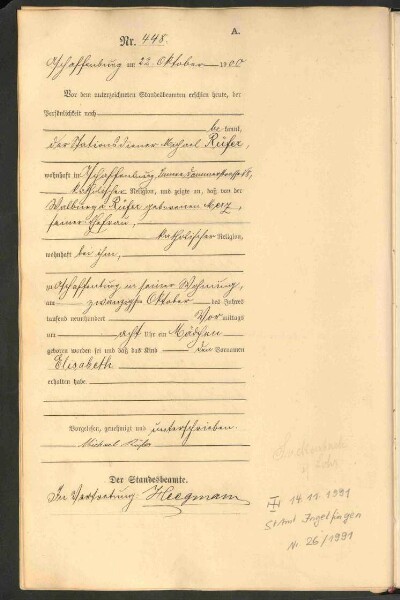 A.
Nr. 448.
Aschaffenburg am 22. Oktober 1900
Vor dem unterzeichneten Standesbeamten erschien heute, der
Persönlichkeit nach
be kannt,
der Stationsdiener Michael Rüfer,
wohnhaft in Aschaffenburg,
katholischer Religion, und zeigte an, daß von der
Walburga Rüfer geborenen Merz,
seiner Ehefrau,
katholischer Religion,
wohnhaft bei ihm,
zu Aschaffenburg in seiner Wohnung,
am zwanzigsten Oktober des Jahres
tausend neunhundert Vor mittags
um acht Uhr ein Mädchen
geboren worden sei und daß das Kind den Vornamen
Elisabeth
erhalten habe.
Vorgelesen, genehmigt und unterschrieben.
Michael Rüfer
Der Standesbeamte.
In Vertretung: Heegmann
14.11.1991
St. Amt Ingelfingen
Nr. 26/1991